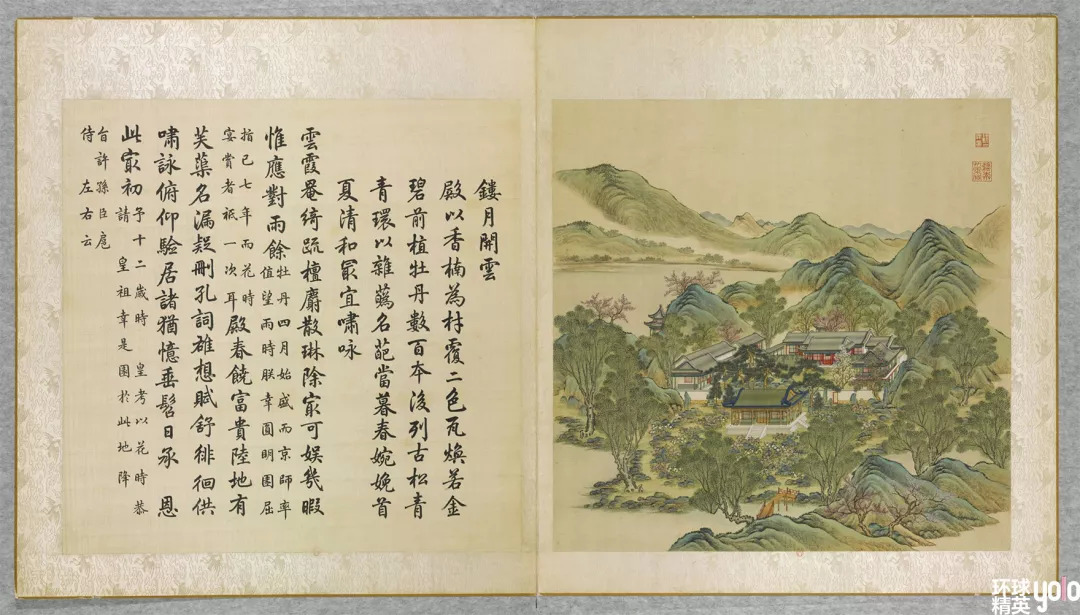 鏤月開雲
殿以香楠為材覆二色瓦煥若金
碧前植牡丹數百本後列古松青
青環以雜蘤名葩當暮春婉娩首
夏清和冣宜嘯咏
雲霞罨綺疏檀麝散琳除冣可娛幾暇
惟應對雨餘牡丹四月始盛而京師率值望雨時朕幸圓明園屈
指已七年而花時宴賞者祗一次耳殿春饒富貴陸地有
芙蕖名漏疑刪孔詞雄想賦舒徘徊供
嘯詠俯仰驗居諸猶憶垂髫日承 恩
此冣初予十二歲時 皇考以花時恭請 皇祖幸是園於此地降
旨許孫臣扈侍左右云
环球
精英 yolo